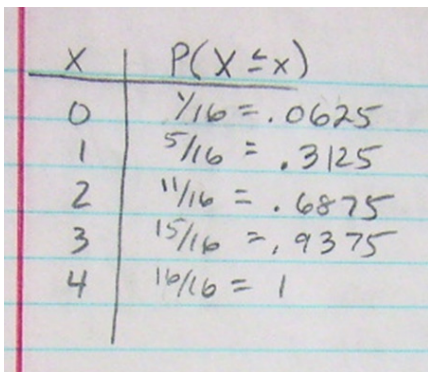 X P(X ≤ x)
0 1/16 = .0625
1 5/16 = .3125
2 11/16 = .6875
3 15/16 = .9375
4 16/16 = 1